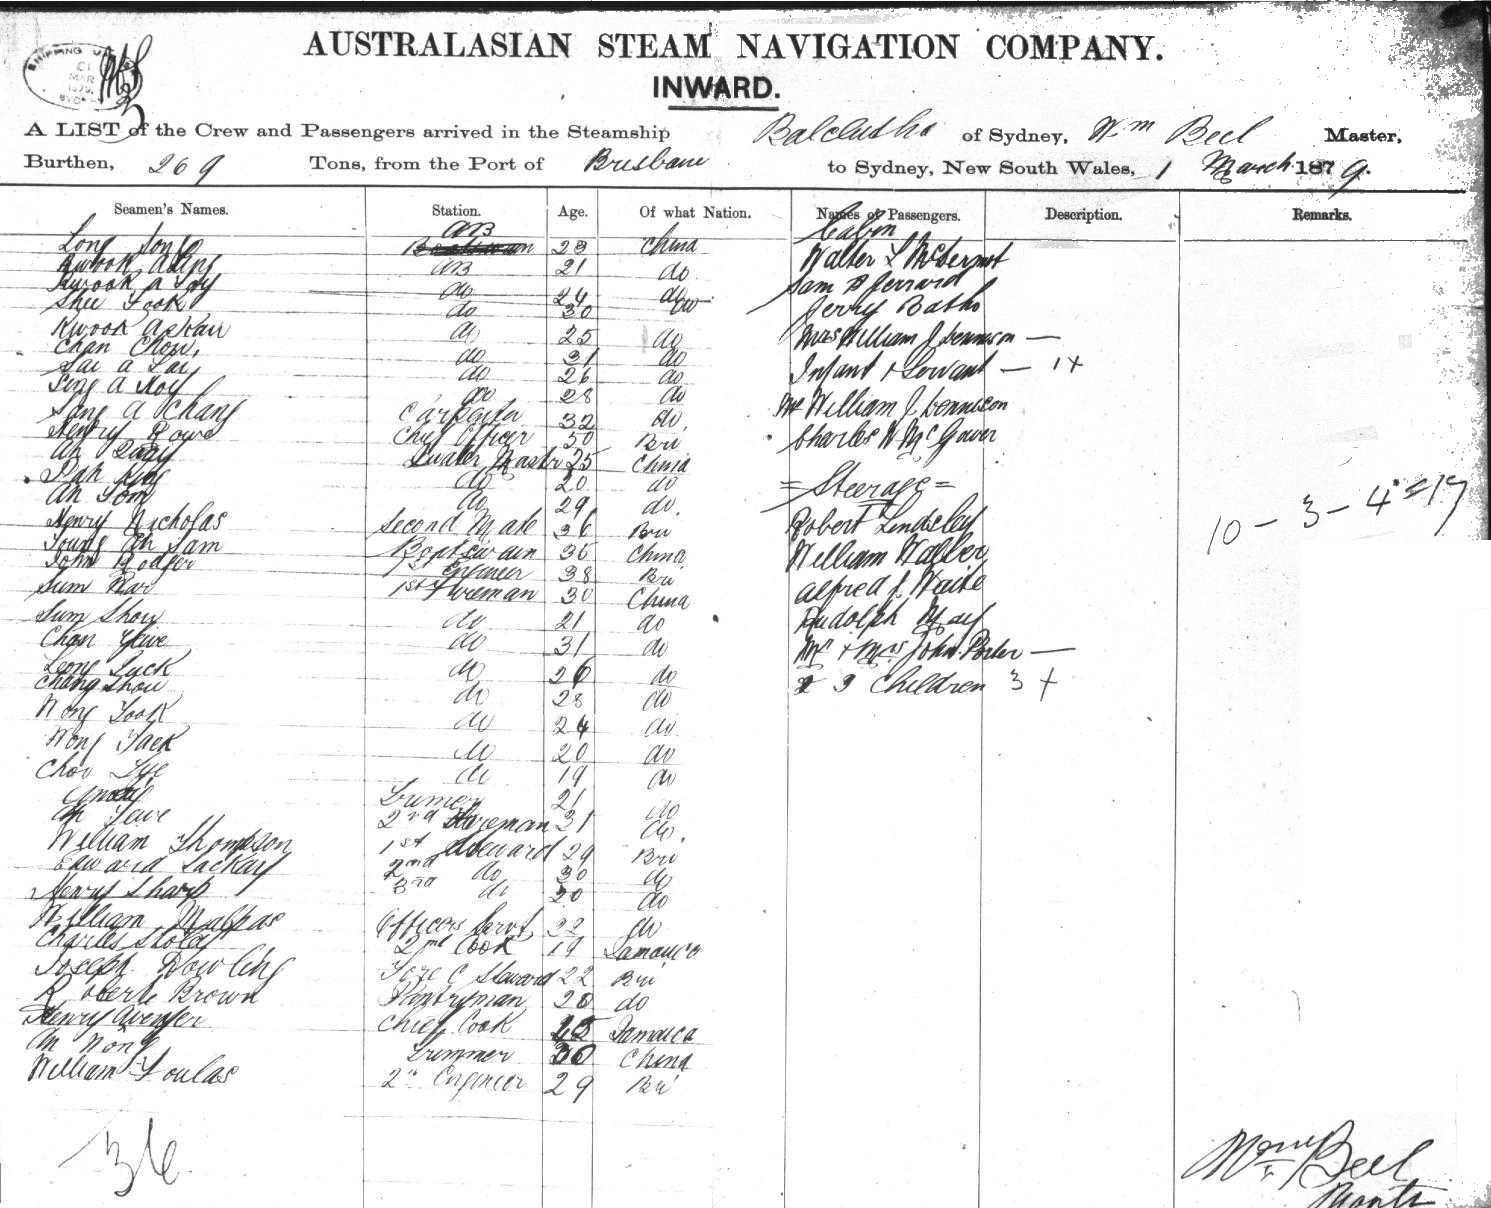 SHIPPING
MAR
AUSTRALASIAN STEAM NAVIGATION COMPANY.
INWARD.
A LIST of the Crew and Passengers arrived in the Steamship Balclutha of Sydney, Wm Beel Master,
Burthen, 269 Tons, from the Port of Brisbane to Sydney, New South Wales, 1 March 1879.
Seamen's Names. Station. Age. Of what Nation. Names of Passengers. Description. Remarks.
AB Cabin
Long 23 China Walter L McDermot
AB 21 do
Kwook a do 24 do Sam B Jerrard
Shee Fook do 30 do Jerry Batho
Kwook do 25 do Mrs William J Dennison —
Chan Chow, do 31 do
Sai a Lai do 26 do Infant & Servant — 1 +
do 28 do
a Chang Carpenter 32 do, Mr William J Dennison
Henry Rowe Chief Officer 50 Bri Charles W McGower
Ah Quater Mastr 25 China
Pah do 20 do = Steerage =
Ah Tom do 29 do.
Henry Nicholas Second Mate 36 Bri Robert Lindsley 10 – 3 – 4 = 17
Young Ah Sam Boatswain 36 China William Waller
John Rodger 1st Engineer 38 Bri
Sum 1st Fireman 30 China Alfred J. Waite
Sum Show do 21 do Rudolph May
Chan do 31 do Mr & Mrs John Porter —
Leong Luck do 26 do
Chang Show do 28 do 3 Children 3 +
Wong Fook do 24 do
Wong Jack do 20 do
Chow do 19 do
21 do
Ah 2nd Fireman 31 do.
William Thompson 1st Steward 29 Bri
Edward Lackay 2nd do 30 do
Henry Sharp 3rd do 20 do
William Malpas Officers Servt 22 do
Charles 2nd Cook 19 Jamaica
Joseph Dowling Fore C Steward 22 Bri
Roberte Brown Pantryman 20 do
Henry Chief Cook 25 Jamaica
Ah Wong Trimmer 30 China
William Foulas 2n Engineer 29 Bri
36
Wm Beel